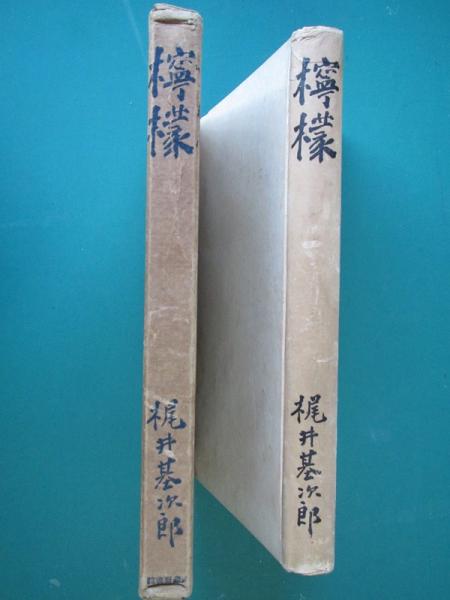 檸檬
梶井基次郎
檸檬
梶井基次郎